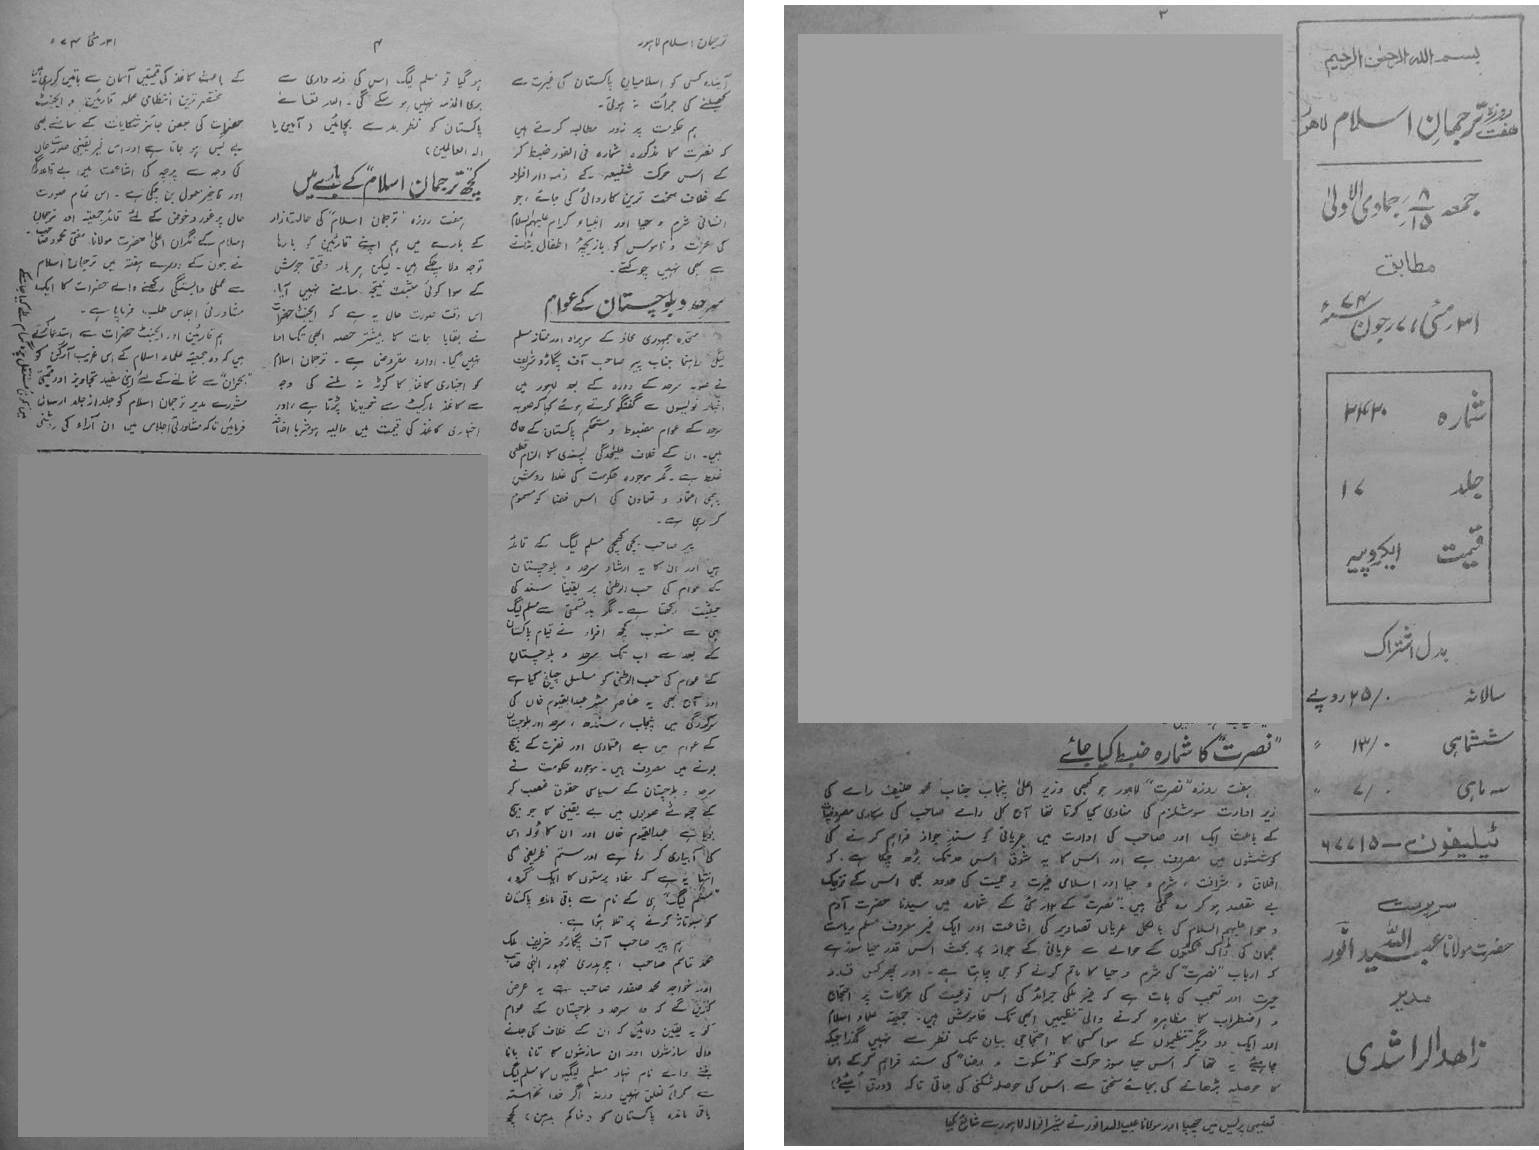 ۲
بسم الله الرحمن الرحیم
ہفت روزہ ترجمانِ اسلام لاہور
جمعہ ۸/۱۵ جمادی الاولیٰ
مطابق
۳۱ مئی / ۷ جون ۷۴ء
شمارہ
جلد ۱۷
قیمت ایکروپیہ
بدل اشتراک
سالانہ ۲۵/۰ روپے
ششماہی ۱۳/۰ "
سہ ماہی ۷/۰ "
ٹیلیفون — ۶۷۷۱۵
سرپرست
حضرت مولانا عبید اللہ انور
مدیر
زاھد الراشدی
"نصرت" کا شمارہ ضبط کیا جائے
ہفت روزہ "نصرت" لاہور جو کبھی وزیر اعلیٰ پنجاب جناب محمد حنیف رامے کی
زیر ادارت سوشلزم کی منادی کیا کرتا تھا آج کل رامے صاحب کی سرکاری مصروفیات
کے باعث ایک اور صاحب کی ادارت میں عریانی کو سندِ جواز فراہم کرنے کی
کوششوں میں مصروف ہے اور اس کا یہ شوق اس حد تک بڑھ چکا ہے کہ
اخلاق و شرافت ، شرم و حیا اور اسلامی غیرت و حمیت کی حدود بھی اس کے نزدیک
بے مقصد ہو کر رہ گئی ہیں۔ "نصرت" کے مئی کے شمارہ میں سیدنا حضرت آدم
و حوا علیہم السلام کی بالکل عریاں تصاویر کی اشاعت اور ایک غیر معروف مسلم ریاست
عجمان کی ڈاک ٹکٹوں کے حوالے سے عریانی کے جواز پر بحث اس قدر حیا سوز ہے
کہ ارباب "نصرت" کی شرم و حیا کا ماتم کرنے کو جی چاہتا ہے۔ اور پھر کس قدر
حیرت اور تعجب کی بات ہے کہ غیر ملکی جرائد کی اس نوعیت کی حرکات پر احتجاج
و اضطراب کا مظاہرہ کرنے والی تنظیمیں ابھی تک خاموش ہیں۔ جمعیۃ علماء اسلام
اور ایک دو دیگر تنظیموں کے سوا کسی کا احتجاجی بیان تک نظر سے نہیں گذرا جبکہ
چاہیئے یہ تھا کہ اس حیا سوز حرکت کو "سکوت و رضا" کی سند فراہم کر کے اس
کا حوصلہ بڑھانے کی بجائے سختی سے اس کی حوصلہ شکنی کی جاتی تاکہ (ورق الٹیئے)
تعلیمی پریس میں چھپا اور مولانا عبید اللہ انور نے شیرانوالہ لاہور سے شائع کیا
ترجمان اسلام لاہور
۴
۳۱ مئی ۷۴ء
آیندہ کسی کو اسلامیانِ پاکستان کی غیرت سے
کھیلنے کی جرأت نہ ہوتی۔
ہم حکومت پر زور مطالبہ کرتے ہیں
کہ نصرت کا مذکورہ شمارہ فی الفور ضبط کر
کے اس حرکت شنیعہ کے ذمہ دار افراد
کے خلاف سخت ترین کاروائی کی جائے ، جو
انسانی شرم و حیا اور انبیاء کرام علیہم السلام
کی عزت و ناموس کو بازیچۂ اطفال بنانے
سے بھی نہیں چوکتے۔
سرحد و بلوچستان کے عوام
متحدہ جمہوری محاذ کے سربراہ اور ممتاز مسلم
لیگی راہنما جناب پیر صاحب آف پگاڑو شریف
نے صوبہ سرحد کے دورہ کے بعد لاہور میں
اخبار نویسوں سے گفتگو کرتے ہوئے کہا کہ صوبہ
سرحد کے عوام مضبوط و مستحکم پاکستان کے حامی
ہیں۔ ان کے خلاف علیحدگی پسندی کا الزام قطعی
غلط ہے۔ مگر موجودہ حکومت کی غلط روش
باہمی اعتماد و تعاون کی اس فضا کو مسموم
کر رہی ہے۔
پیر صاحب بچی کھچی مسلم لیگ کے قائد
ہیں اور ان کا یہ ارشاد سرحد و بلوچستان
کے عوام کی حب الوطنی پر یقیناً سند کی
حیثیت رکھتا ہے۔ مگر بدقسمتی سے مسلم لیگ
ہی سے منسوب کچھ افراد نے قیام پاکستان
کے بعد سے اب تک سرحد و بلوچستان
کے عوام کی حب الوطنی کو مسلسل چیلنج کیا ہے
اور آج بھی یہ عناصر مسٹر عبدالقیوم خاں کی
سرکردگی میں پنجاب ، سندھ ، سرحد اور بلوچستان
کے عوام میں بے اعتمادی اور نفرت کے بیج
بونے میں مصروف ہیں۔ موجودہ حکومت نے
سرحد و بلوچستان کے سیاسی حقوق غصب کر
کے چھوٹے صوبوں میں بے یقینی کا جو بیج
بویا ہے عبدالقیوم خاں اور ان کا ٹولہ اس
کی آبیاری کر رہا ہے اور ستم ظریفی کی
انتہا یہ ہے کہ مفاد پرستوں کا ایک گروہ
"مسلم لیگ" ہی کے نام سے باقی ماندہ پاکستان
کو سبوتاژ کرنے پر تلا ہوا ہے۔
ہم پیر صاحب آف پگاڑو شریف، ملک
محمد قاسم صاحب ، چوہدری ظہور الٰہی صاحب
اور خواجہ محمد صفدر صاحب سے یہ عرض
کریں گے کہ وہ سرحد و بلوچستان کے عوام
کو یہ یقین دلائیں کہ ان کے خلاف کی جانے
والی سازشوں اور ان سازشوں کا تانا بانا
بننے والے نام نہاد مسلم لیگیوں کا مسلم لیگ
سے کوئی تعلق نہیں ورنہ اگر خدا نخواستہ
باقی ماندہ پاکستان کو (خاکم بدہن) کچھ
ہو گیا تو مسلم لیگ اس کی ذمہ داری سے
بری الذمہ نہیں ہو سکے گی۔ اللہ تعالےٰ
پاکستان کو نظر بد سے بچائیں (آمین یا
الٰہ العالمین)
کچھ "ترجمان اسلام" کے بارے میں
ہفت روزہ "ترجمان اسلام" کی حالت زار
کے بارے میں ہم اپنے قارئین کو بارہا
توجہ دلا چکے ہیں۔ لیکن ہر بار وقتی جوش
کے سوا کوئی مثبت نتیجہ سامنے نہیں آیا۔
اس وقت صورت حال یہ ہے کہ ایجنٹ حضرات
نے بقایا جات کا بیشتر حصہ ابھی تک ادا
نہیں کیا۔ ادارہ مقروض ہے۔ ترجمان اسلام
کو اخباری کاغذ کا کوٹہ نہ ملنے کی وجہ
سے کاغذ مارکیٹ سے خریدنا پڑتا ہے ، اور
اخباری کاغذ کی قیمت میں حالیہ ہوشربا اضافہ
کے باعث کاغذ کی قیمتیں آسمان سے باتیں کر رہی ہیں
مختصر ترین انتظامی عملہ قارئین و ایجنٹ
حضرات کی بعض جائز شکایات کے سامنے بھی
بے بس ہو جاتا ہے اور اس غیر یقینی صورت حال
کی وجہ سے پرچہ کی اشاعت میں بے قاعدگی
اور تاخیر معمول بن چکی ہے۔ اس تمام صورت
حال پر غور و خوض کے لئے قائد جمعیۃ اور ترجمان
اسلام کے نگران اعلیٰ حضرت مولانا مفتی محمود صاحب
نے جون کے دوسرے ہفتہ میں ترجمان اسلام
سے عملی وابستگی رکھنے والے حضرات کا ایک
مشاورتی اجلاس طلب فرمایا ہے۔
ہم قارئین اور ایجنٹ حضرات سے استدعا کرتے
ہیں کہ وہ جمعیۃ علماء اسلام کے اس غریب آرگن کو
"بحران" سے نکالنے کے لئے اپنی مفید تجاویز اور قیمتی
مشورے مدیر ترجمان اسلام کو جلد از جلد ارسال
فرمائیں تاکہ مشاورتی اجلاس میں ان آراء کی روشنی
میں کوئی مستقل پروگرام طے کیا جا سکے